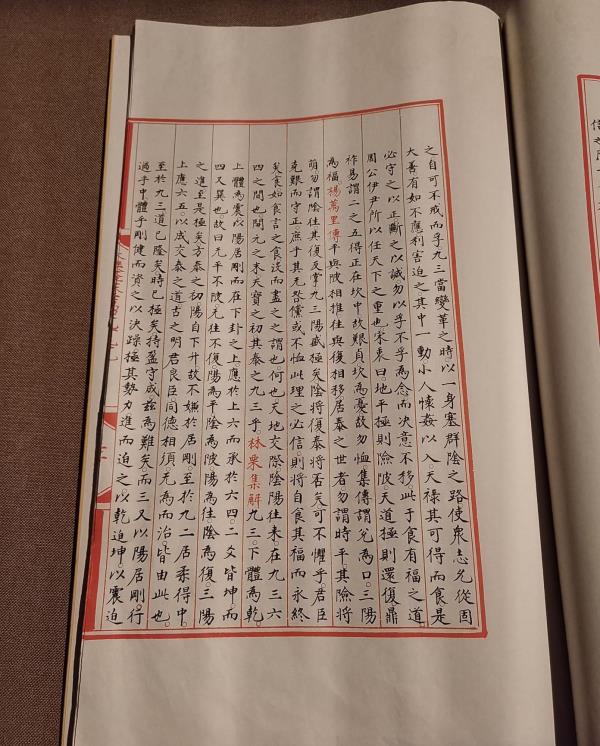 之自可不戒而孚九三當變革之時以一身塞群陰之路使衆志允從固
大善有如不應利害迫之其中一動小人懷姦以入天祿其可得而食是
必守之以正斷之以誠勿以孚不孚為念而決意不移此于食有福之道
周公伊尹所以任天下之重也宋衷曰地平極則險陂天道極則還復鼎
祚易謂二之五得正在坎中故艱貞坎為憂故勿恤集傳謂兌為口三陽
為福楊萬里傳平與陂相推往與復相移居泰之世者勿謂時平其險將
萌勿謂陰往其復反掌九三陽盛極矣陰將復泰將否矣可不懼乎君臣
克艱而守正庶乎其无咎儻或不恤此理之必信則將自食其福而永終
矣食如食言之食沒而盡之之謂也何也天地交際陰陽往來在九三六
四之間也開元之末天寶之初其泰之九三乎林栗集解九三下體為乾
上體為震以陽居剛而在下卦之上應於上六而承於六四二爻皆坤而
四又巽也故曰无平不陂无往不復陽為平陰為陂陽為往陰為復三陽
之進至是極矣方泰之初陽自下升故不嫌於居剛至於九二居柔得中
上應六五以成交泰之道古之明君良臣同德相須无為而治皆由此也
至於九三道已隆矣時已極矣持盈守成兹為難矣而三又以陽居剛行
過乎中體乎剛健而資之以決躁極其勢力進而迫之以乾迫坤以震迫
信之